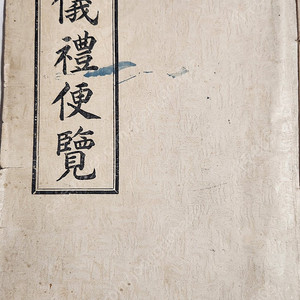 儀禮便覽